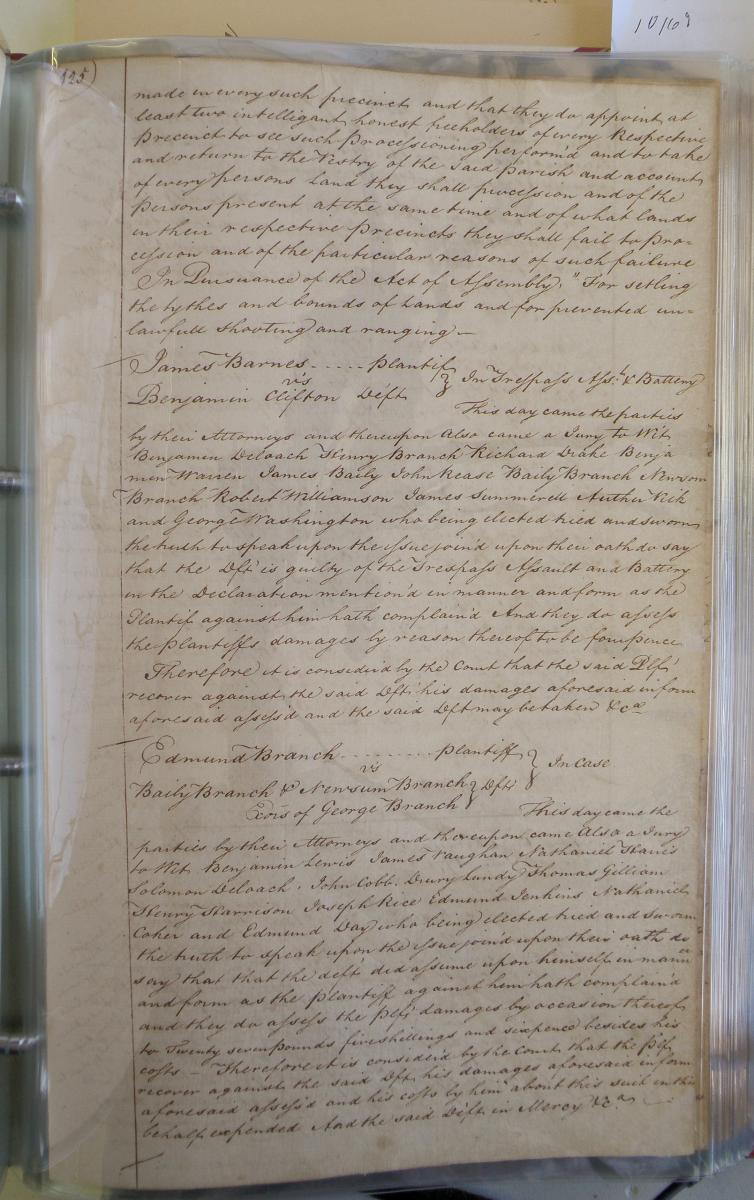 10/68
125)
made in every such precinct and that they do appoint at
least two intelligent honest freeholders of every Respective
Precinct to see such Processioning perform'd and to take
and return to the Vestry of the said Parish and account
of every persons Land they shall procession and of the
Persons present at the same time and of what lands
in their respective Precincts they shall fail to Pro=
cession and of the particular reasons of such failure
In Pursuance of the Act of Assembly, "For setling
the tythes and bounds of Lands and for prevented un=
lawfull shooting and ranging —
James Barnes - - - - - Plantif
vs } In Trespass Asst. & Battery
Benjamin Clifton Deft.
This day came the parties
by their Attorneys and thereupon Also came a Jury to Wit
Benjamin Deloach Henry Branch Richard Drake Benja
men Warren James Baily John Rease Baily Branch Newsom
Branch Robert Williamson James Summerell Authur Vick
and George Washington who being elected tried and sworn
the truth to speak upon the issue join'd upon their oath do say
that the Dft is guilty of the Trespass Assault and Battery
in the Declaration mention'd in manner and form as the
Plantif against him hath complain'd And they do assess
the plantiffs damages by reason thereof to be four pence
Therefore it is consider'd by the Court that the said Plf
recover against the said Dft his damages aforesaid in form
aforesaid assess'd and the said Dft may be taken &ca
Edmund Branch - - - - - - - - - Plantiff
vs } In Case
Baily Branch & Newsum Branch } Dft
Exors of George Branch
This day came the
parties by their Attorneys and thereupon came Also a Jury
to Wit Benjamin Lewis James Vaughan Nathaniel Haris
Solomon Deloach, John Cobb, Drury Lundy Thomas Gilliam
Henry Harrison Joseph Rice Edmund Jenkins Nathaniel
Coker and Edmund Day who being elected tried and Sworn
the truth to speak upon the issue join'd upon their oath do
say that that the deft did assume upon himself in mann
and form as the Plantiff against him hath complain'd
and they do assess the Plfs damages by occasion thereof
to Twenty seven pounds five shillings and sixpence besides his
costs — Therefore it is consider'd by the Court that the Plf
recover against the said Dft his damages aforesaid in form
aforesaid assess'd and his costs by him about this suit in this
behalf expended And the said Deft in Mercy &ca